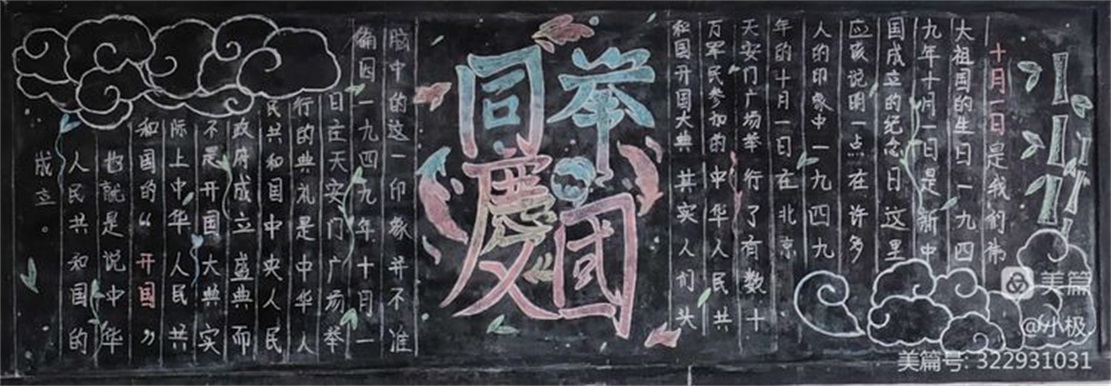 十月一日是我们伟
大祖国的生日一九四
九年十月一日是新中
国成立的纪念日这里
应该说明一点在许多
人的印象中一九四九
年的十月一日在北京
天安门广场举行了有数十
万军民参加的中华人民共
和国开国大典其实人们头
举国
同慶
脑中的这一印象并不准
确因一九四九年十月一
日在天安门广场举
行的典礼是中华人
民共和国中央人民
政府成立盛典而
不是开国大典实
际上中华人民共
和国的“开国”
也就是说中华
人民共和国的
成立。
美篇
@小极
美篇号: 322931031